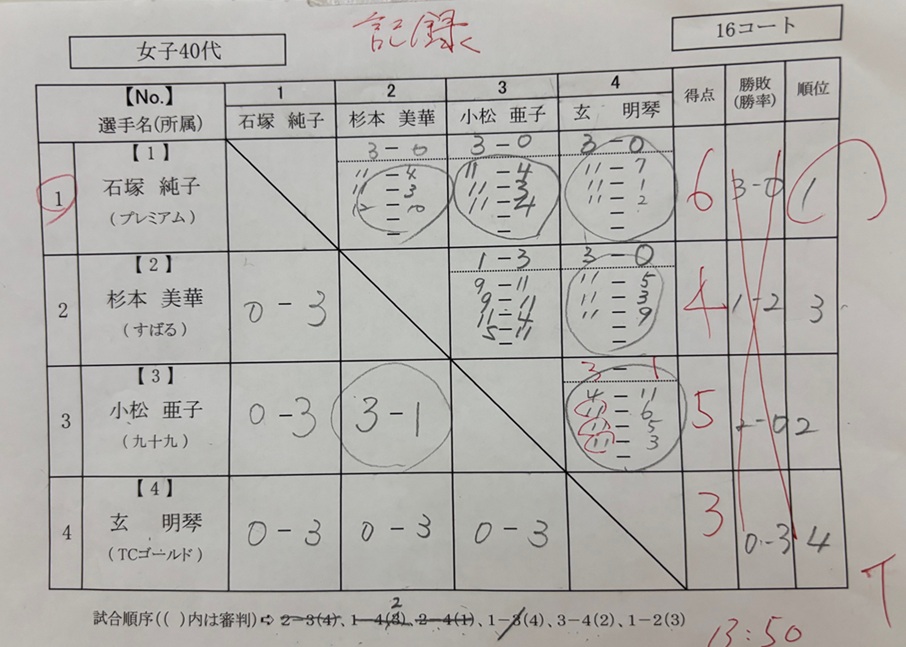 記録
女子40代
16コート
【No.】
選手名(所属)
1 2 3 4
石塚 純子 杉本 美華 小松 亜子 玄 明琴
得点 勝敗(勝率) 順位
1
【1】
石塚 純子
(プレミアム)
3-0 3-0 3-0
11-4 11-4 11-7
11-3 11-3 11-1
12-10 11-4 11-2
- - -
- - -
6 3-0 1
2
【2】
杉本 美華
(すばる)
0-3
1-3 3-0
9-11 11-5
9-11 11-3
11-4 11-9
5-11 -
- -
4 1-2 3
3
【3】
小松 亜子
(九十九)
0-3 3-1
3-1
4-11
11-6
11-5
11-3
-
5 2-0 2
4
【4】
玄 明琴
(TCゴールド)
0-3 0-3 0-3
3 0-3 4
試合順序(( )内は審判)➪ 2-3(4)、1-4(3)、2-4(1)、1-3(4)、3-4(2)、1-2(3)
2
13:50